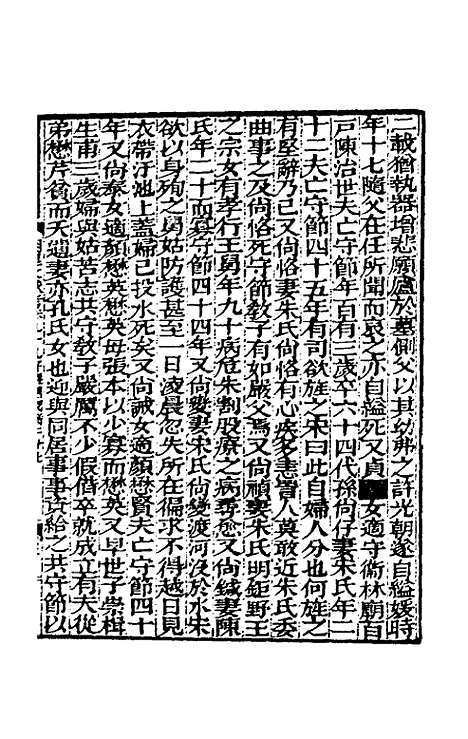 二載猶執喪增悲願廬於墓側父以其幼弗之許光朝遂自縊媛時
年十七隨父在任所聞而哀之亦自縊死又貞女適守衞林廟百
戸陳治世夫亡守節年百有三歲卒六十四代孫尙仔妻朱氏年二
十二夫亡守節四十五年有司欲旌之朱曰此自婦人分也何旌之
有堅辭乃已又尙恪妻朱氏尙恪有心疾多恚詈人莫敢近朱氏委
曲事之及尙恪死守節敎子有如嚴父焉又尙禎妻朱氏明鉅野王
之宗女有孝行王舅年九十病危朱割股療之病尋愈又尙鍼妻陳
氏年二十而寡守節四十四年又尙變妻宋氏尙變渡河沒於水宋
欲以身殉之舅姑防護甚至一日凌晨忽失所在徧求不得越日見
衣帶汙池上蓋婦已投水死矣又尙諴女適顏懋賢夫亡守節四十
年又尙泰女適顏懋英懋英毋張本以少寡而懋英又早世子崇楫
生甫三歲婦與姑苦志共守敎子嚴厲不少假借卒就成立有夫從
弟懋芹貧而夭遺妻亦孔氏女也迎與同居事事資給之共守節以